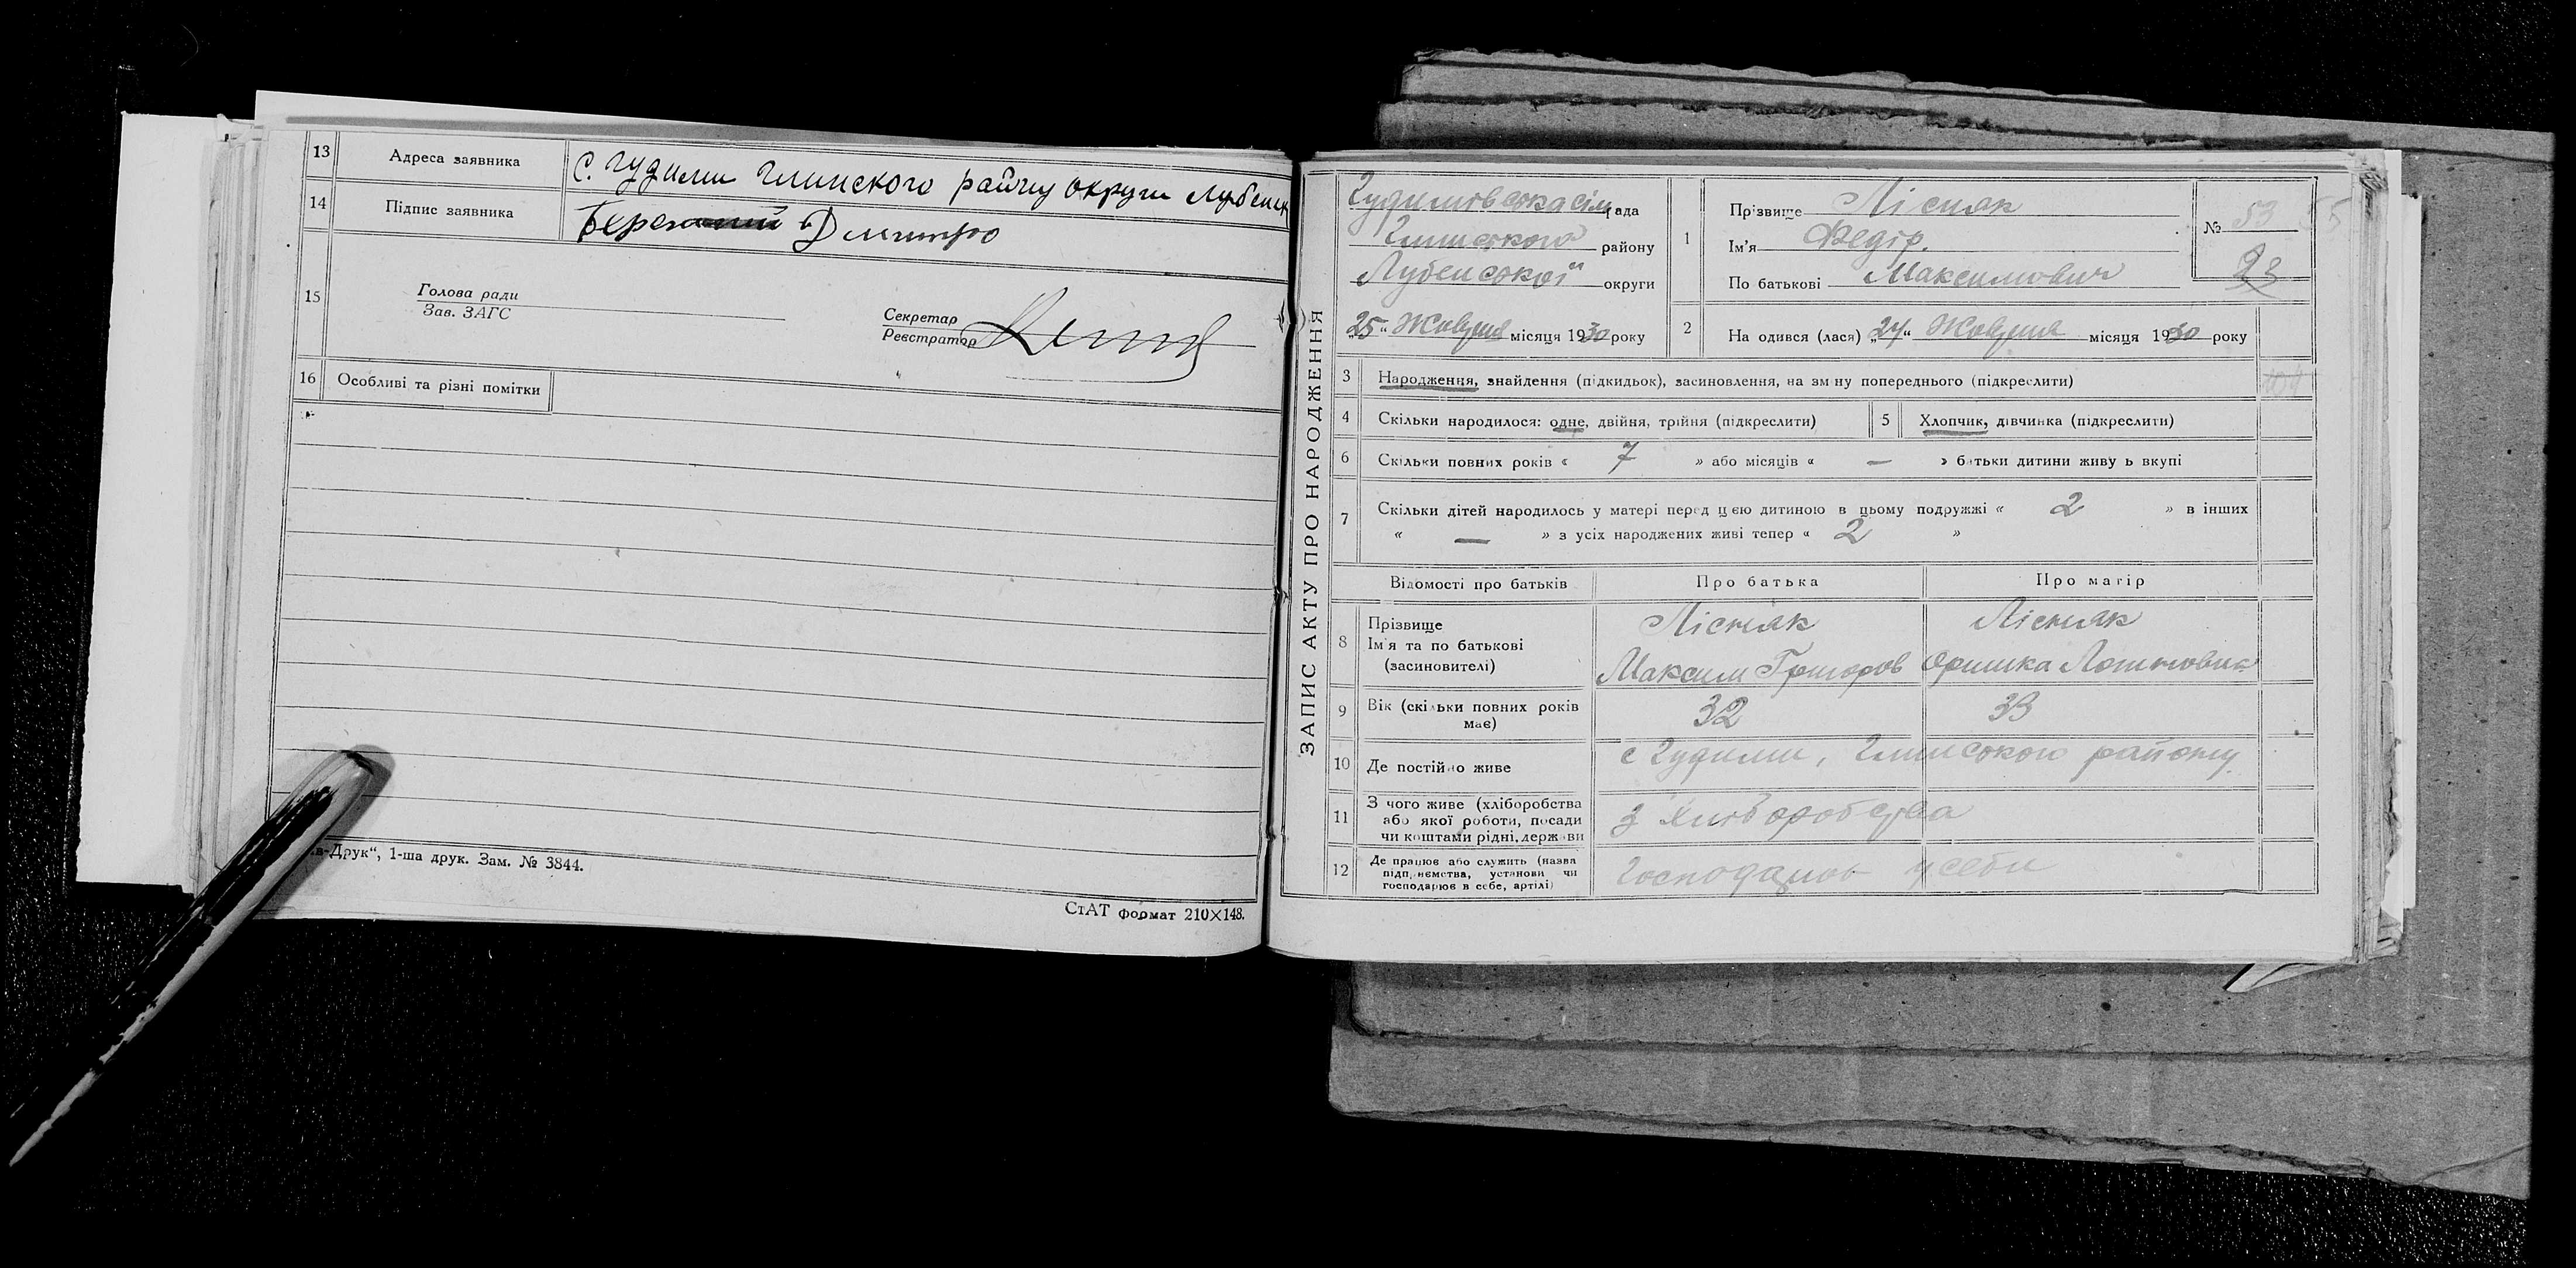 13 Адреса заявника с. Гудими Глинского району округи Лубенск
14 Підпис заявника Дмитро
15 Голова ради
Зав. ЗАГС
Секретар
Реєстратор
16 Особливі та різні помітки
-Друк", 1-ша друк. Зам. № 3844.
СтАТ формат 210×148.
ЗАПИС АКТУ ПРО НАРОДЖЕННЯ
Гудимівська сільрада
Глинського району
Лубенської округи
„25" Жовтня місяця 1930 року
1 Прізвище Лісняк
Ім'я Федір.
По батькові Максимович
№ 53
23
2 На одився (лася) „24" Жовтня місяця 1930 року
3 Народження, знайдення (підкидьок), засиновлення, на зм ну попереднього (підкреслити)
4 Скільки народилося: одне, двійня, трійня (підкреслити)
5 Хлопчик, дівчинка (підкреслити)
6 Скільки повних років « 7 » або місяців « — » батьки дитини живу ь вкупі
7 Скільки дітей народилось у матері перед цією дитиною в цьому подружжі « 2 » в інших
« — » з усіх народжених живі тепер « 2 »
Відомості про батьків Про батька Про матір
8 Прізвище Лісняк Лісняк
Ім'я та по батькові
(засиновителі) Максим Григоров Оришка
9 Вік (скільки повних років
має) 32 33
10 Де постійно живе с Гудими, Глинського району.
11 З чого живе (хліборобства
або якої роботи, посади
чи коштами рідні, держави
з хліборобства
12 Де працює або служить (назва
підприємства, установи чи
господарює в себе, артілі)
у себе